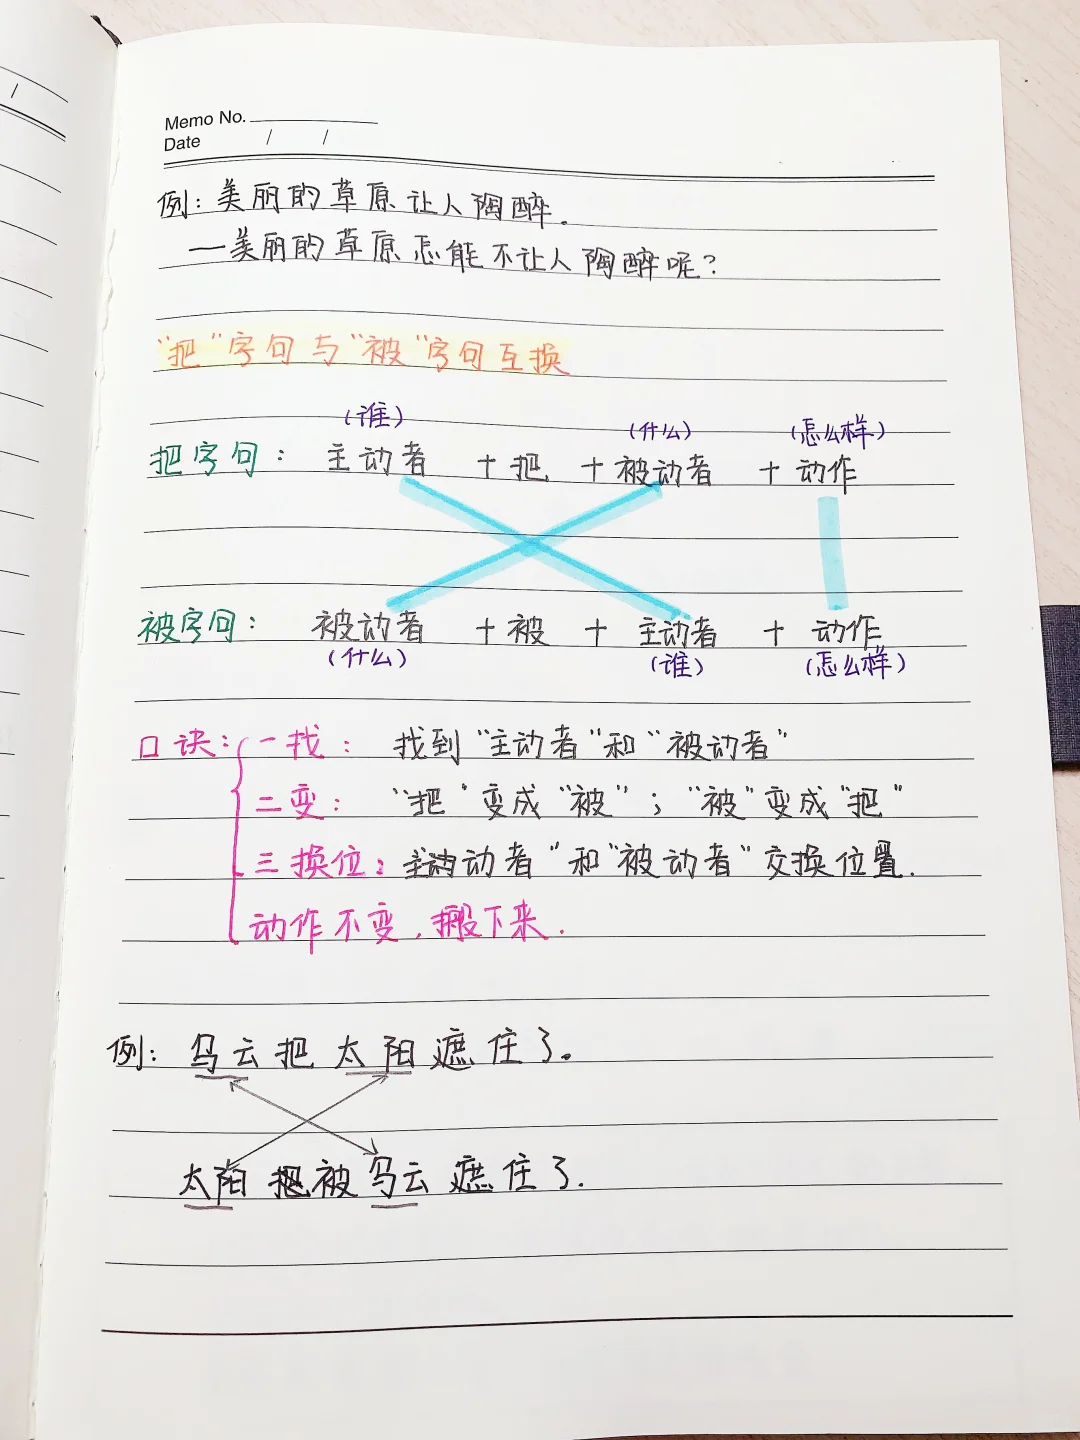 Memo No.
Date / /
例：美丽的草原让人陶醉.
—美丽的草原怎能不让人陶醉呢？
“把”字句与“被”字句互换
（谁） （什么） （怎么样）
把字句： 主动者 + 把 + 被动者 + 动作
被字句： 被动者 + 被 + 主动者 + 动作
（什么） （谁） （怎么样）
口诀： 一找： 找到“主动者”和“被动者”
二变： “把”变成“被”；“被”变成“把”
三换位：主动者”和“被动者”交换位置.
动作不变，搬下来.
例：乌云把太阳遮住了。
太阳被乌云遮住了.